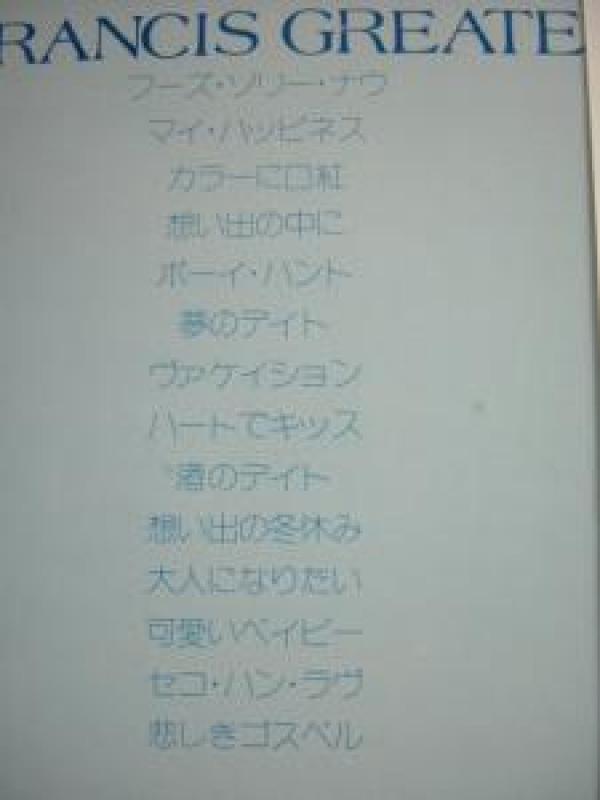 RANCIS GREATE
フーズ・ソリー・ナウ
マイ・ハッピネス
カラーに口紅
想い出の中に
ボーイ・ハント
夢のデイト
ヴァケイション
ハートでキッス
渚のデイト
想い出の冬休み
大人になりたい
可愛いベイビー
セコ・ハン・ラヴ
悲しきゴスペル